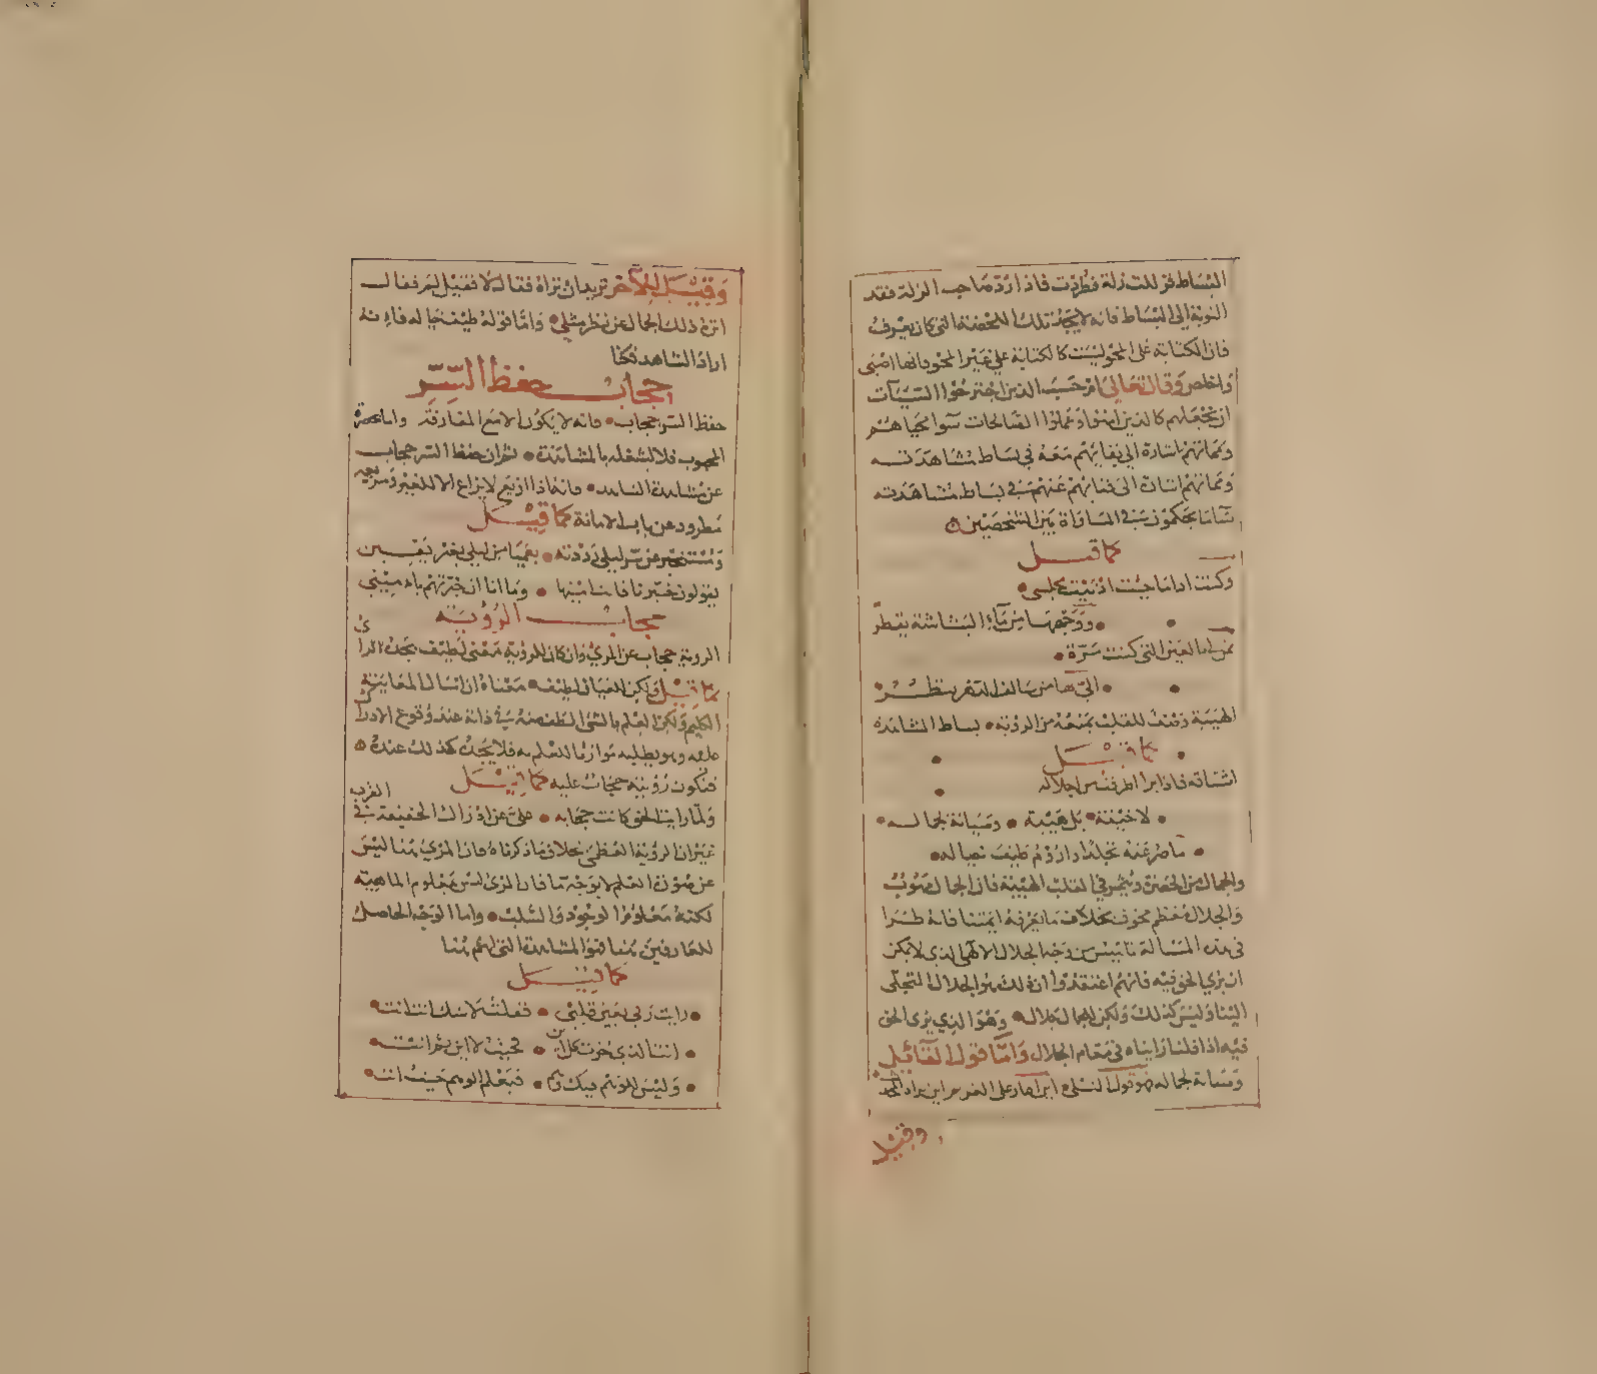 البساط فزللت زلة فطردت فاذا ارد صاحب الزلة فقد
التوبة الى البساط فانه لا يجد تلك اللحضة التي كان يعرف
فان الكتابة على المحو ليست كالكتابة علي غير المحو بانها اصفى
واخلص وقال تعالى ام حسب الذين اجترحوا السيئات
ان نجعلهم كالذين امنوا وعملوا الصالحات سوا محياهم
ومماتهم اشارة الى بقائهم معه في بساط مشاهدته
ومماتهم اشارة الى فنائهم عنهم في بساط مشاهدته
سآما يحكمون في المساواة بين الشخصين
كما قيل
وكنت اذا ما جئت ادنيت مجلسي
ووجهها من مآء البشاشة يقطر
فمن لي بالعين التي كنت مرة
الىّ بها من سالف الدهر ينظر
الهيبة وصف للقلب يمنعه من الرؤية بساط المشاهدة
كما قيل
اشتاقه فاذا بدا اطرقت من اجلاله
لا خيفة بل هيبة وصيانة لجماله
واصد عنه تجلدا واروم طيف خياله
والجمال من الحضرة يثمر في القلب الهيبة فان الجمال
والجلال معظم مخوف بخلاف ما يعرفه ايمتنا فانه طرا
في هذه المسالة تلبيس من وجه الجلال الالهي الذي لا يمكن
ان يري الحق فيه فانهم اعتقدوا ان ذلك هو الجلال المتجلى
الينا وليس كذلك ولكن للجمال جلال وهو الذي يرى الحق
فيه اذا قلنا رايناه في مقام الجلال واما قول القائل
وصيانة لجماله فهو قول الشبلي
وقيل
وقيل للآخر تريد ان تراه فقال لا فقيل لم فقال
انزه ذلك الجمال عن نظر مثلي واما قوله طيف خياله فانه
اراد الشاهد
حجاب حفظ السر
حفظ السر حجاب فانه لا يكون الا مع المفارقة واما حضرة
المحبوب فلا لشغله بالمشاهدة ثم ان حفظ السر حجاب
عن مشاهدة الشاهد فانه اذا اذيع لا يذاع الا للغير ومذيعه
مطرود عن باب الامانة كما قيل
ومستخبر عن سر ليلى رددته بعميا من ليلى بغير يقين
يقولون خبرنا فانت امينها وما انا ان خبرتهم بامين
حجاب الرؤية
الروية حجاب عن المريّ وان كان للرؤية معنى لطيف يجده الرائ
كما قيل ولكن للعيان لطيف معناه ان سال المعاينة
الكليم ولكن العلم بالشى الطف منه في ذاته عند وقوع الادراك
عليه وهو يطلبه موازما للعلم به فلا يجده كذلك عنده
فتكون رؤيته حجاب عليه كما قيل
ولما رايت الحق كانت حجابه علىّ عن ادراك الحقيقة في القرب
غير ان الرؤية العظمى بخلاف ما ذكرناه فان المرئ هنا ليس
عن صورة العلم لا بوجه ما فان المرئ ليس بمعلوم الماهية
لكنه معلوم الوجود والسلب واما الوجه الحاصل
للعارفين هنا فهو المشاهدة التي لهم هنا
كما قيل
رايت ربي بعين قلبي فقلت لا شك انت انت
انت الذي حزت كل اين فحيث لا اين ثم انت
وليس للوهم فيك وهم فيعلم الوهم حيث انت